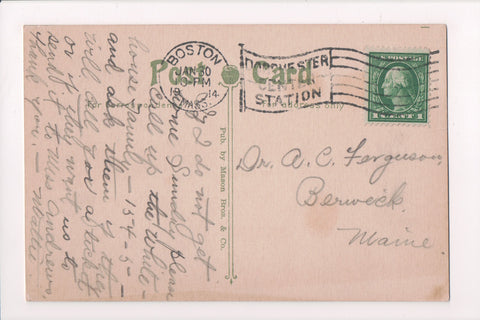 Post Card
For correspondence
For address only
BOSTON
JAN 30
PM
1914
MASS.
DORCHESTER
CENTER
STATION
1 CENT 1
Pub. by Mason Bros. & Co.
If I do not get
home Sunday please
call up the White-
house family - 154-5 -
and ask them if they
will call for a ticket
or if they want us to
send it to Miss Andrews.
Thank you. - Mattie
Dr. A. C. Ferguson,
Berwick,
Maine